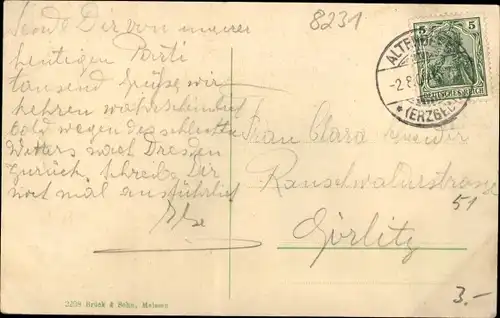 8231
Sende Dir von unserer
heutigen Parti
tausend Grüße wir
kehren wahrscheinlich
bald wegen des schlechten
Wetters nach Dresden
zurück, schreibe Dir
noch mal ausführlich
Else
5 5
DEUTSCHES REICH
ALTENBERG
-2.8.
* (ERZGEB.)
Frau Clara
Rauschwalderstrasse
51
Görlitz
3.-
2298 Brück & Sohn, Meissen